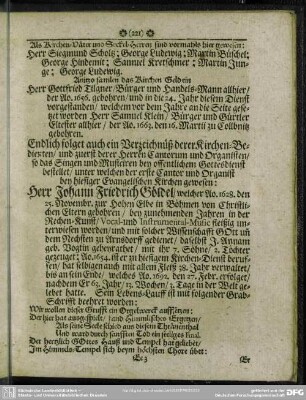 ❀ (221) ❀
Als Kirchen-Väter und Seckel-Herren sind vormahls hier gewesen:
Herr Siegmund Scholz; George Ludewig; Martin Büschel;
George Hindemit; Samuel Kretschmer; Martin Jun-
ge; George Ludewig.
Anitzo samlen das Kirchen Geld ein
Herr Gottfried Tilgner, Bürger und Handels-Mann allhier/
der Ao. 1676. gebohren/ und in die 24. Jahr diesem Dienst
vorgestanden/ welchem vor dem Jahre an die Seite gese-
tzet worden Herr Samuel Klein/ Bürger und Gürtler
Eltester allhier/ der Ao. 1663. den 16. Martii zu Collditz
gebohren.
Endlich folget auch ein Verzeichnüß derer Kirchen-Be-
dienten/ und zuerst derer Herren Cantorum und Organisten/
so das Singen und Musiciren bey öffentlichem Gottesdienst
bestellet/ unter welchen der erste Cantor und Organist
bey hiesiger Evangelischen Kirchen gewesen:
Herr Johann Friedrich Gödel/ welcher Ao. 1628. den
25. Novembr. zur Hohen Elbe in Böhmen von Christli-
chen Eltern gebohren/ bey zunehmenden Jahren in der
Rechen-Kunst/ Vocal- und Instrumental-Music fleißig un-
terwiesen worden/ und mit solcher Wissenschafft GOtt und
dem Nechsten zu Arnsdorff gedienet/ daselbst J. Annam
geb. Voigtin geheurathet/ mit ihr 7. Söhne/ 2. Töchter
gezeuget; Ao. 1654. ist er zu hiesigem Kirchen-Dienst beruf-
fen/ hat selbigen auch mit allem Fleiß 38. Jahr verwaltet/
biß an sein Ende/ welches Ao. 1692. den 27. Febr. erfolget/
nachdem Er 63. Jahr/ 13. Wochen/ 3. Tage in der Welt ge-
lebet hatte. Sein Lebens-Laufft ist mit folgender Grab-
Schrifft beehret worden:
Wir wollen dieser Grufft ein Orgelwerck auffsetzen:
Der hier hat ausgespielt/ fand Himmlisches Ergetzen/
Als seine Seele schied aus diesem Thränenthal
Und ward durch sanfften Tod ein seeliges Final.
Der hertzlich GOttes Hauß und Tempel hat geliebet/
Im Himmels-Tempel sich beym höchsten Chore übet:
Ee 3
Er